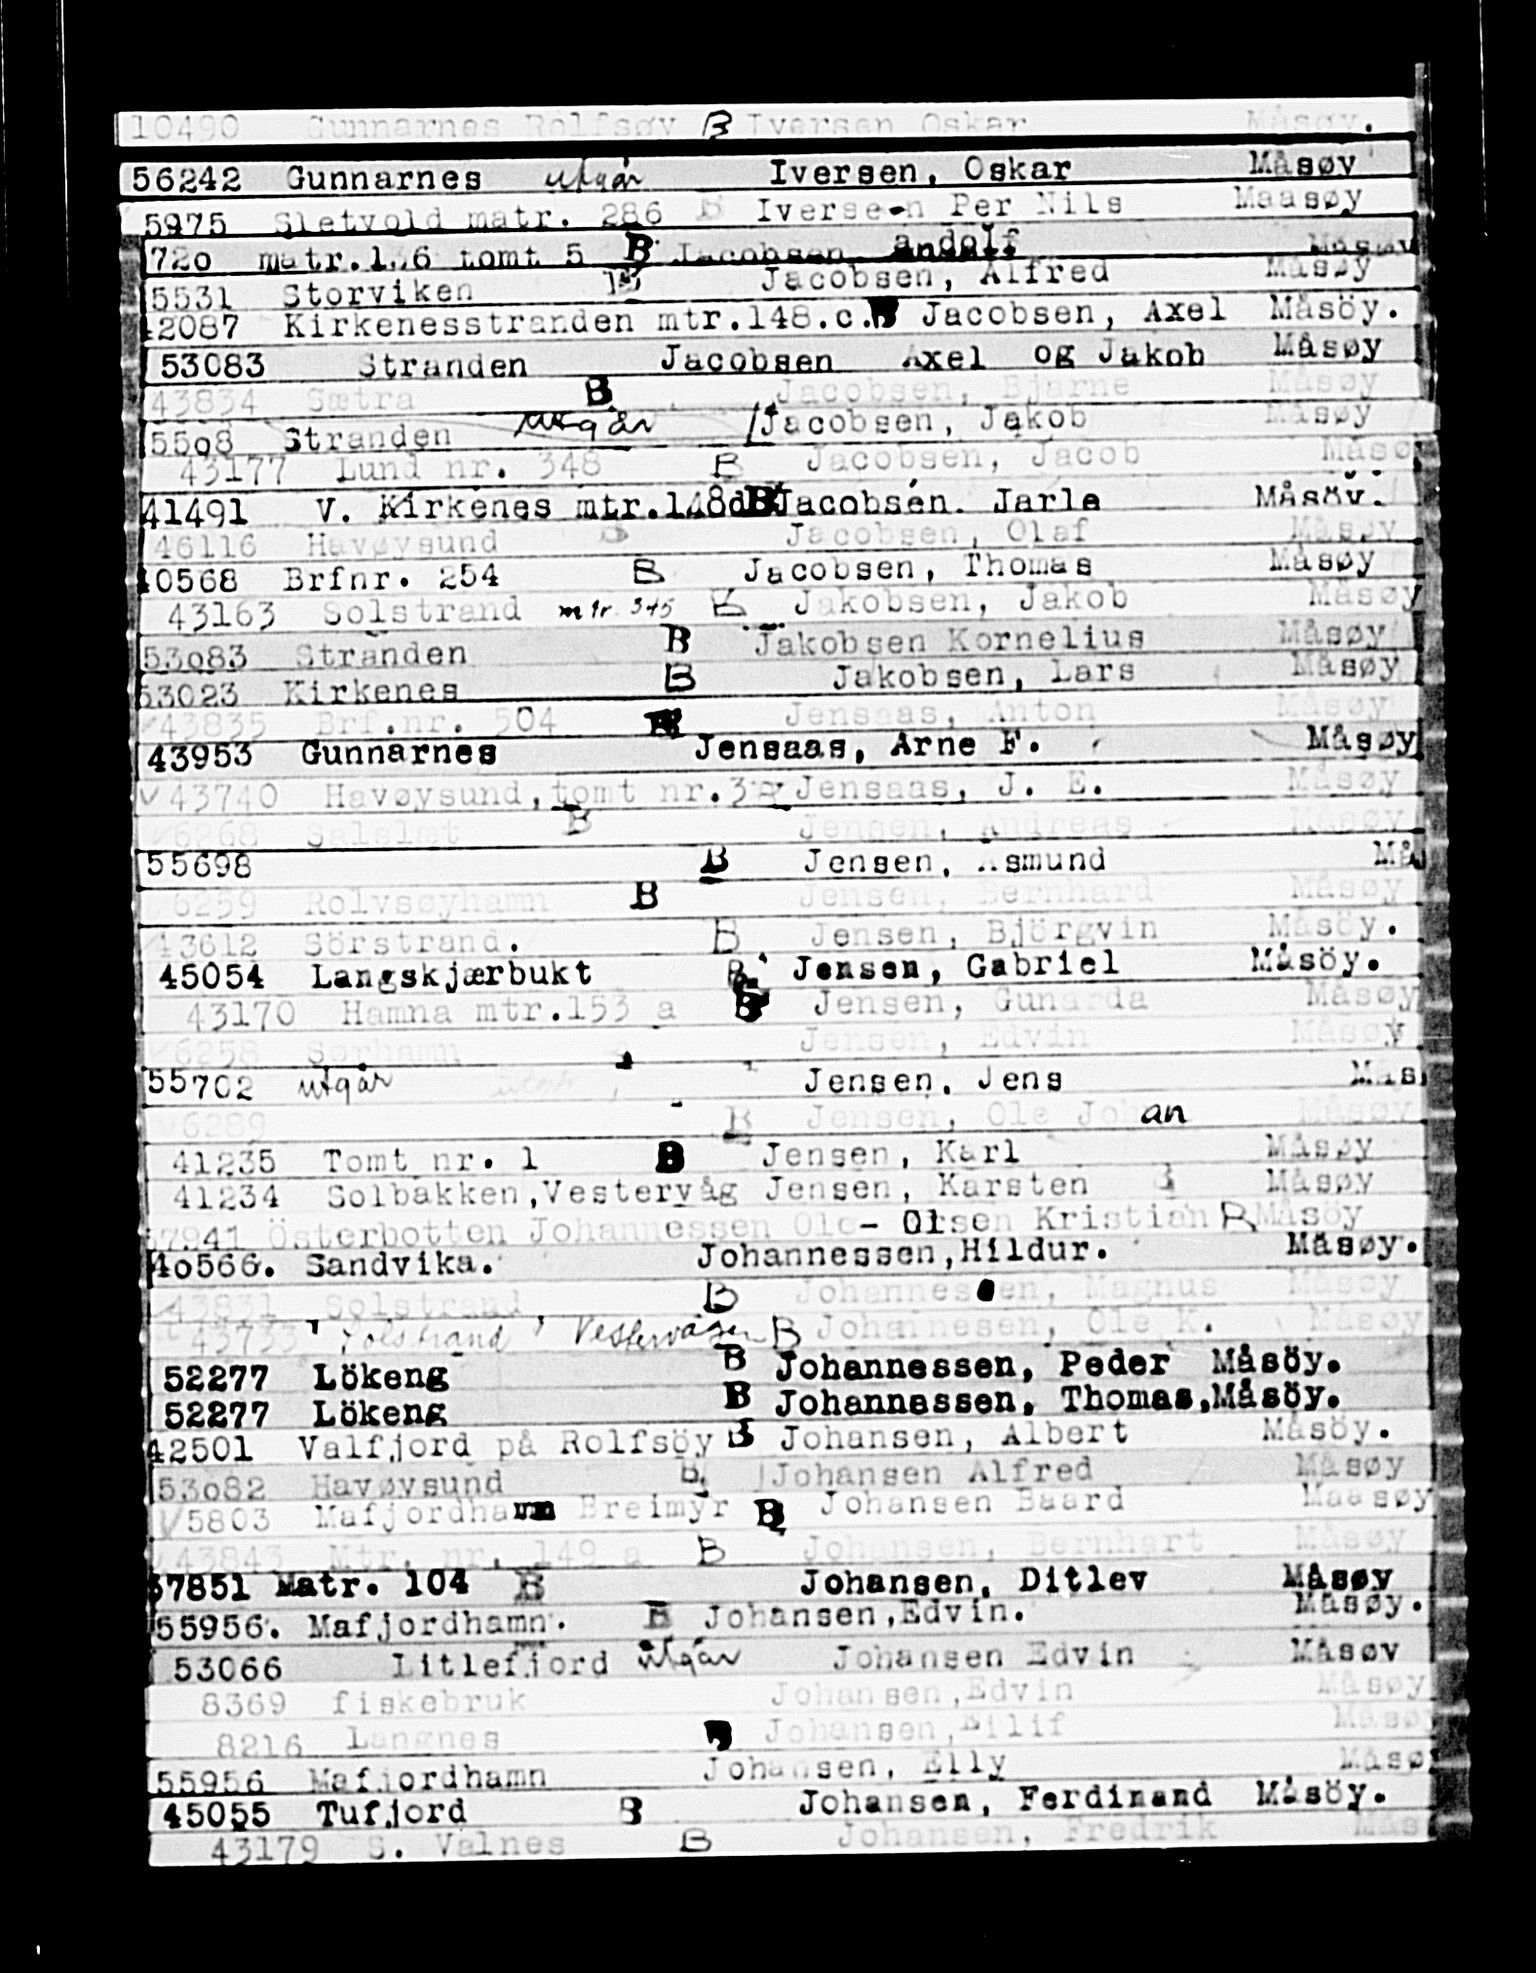 10490 Gunnarnes Rolfsøy B Iversen Oskar Måsøy.
56242 Gunnarnes utgår Iversen, Oskar Måsøy
5975 Sletvold matr. 286 B Iversen Per Nils Maasøy
720 matr.136 tomt 5 B Jacobsen andolf Måsøy
5531 Storviken B Jacobsen, Alfred Måsøy
42087 Kirkenesstranden mtr.148.c.B Jacobsen, Axel Måsöy.
53083 Stranden Jacobsen Axel og Jakob Måsøy
43834 Sætra B Jacobsen, Bjarne Måsøy
5508 Stranden utgår Jacobsen, Jakob Måsøy
43177 Lund nr. 348 B Jacobsen, Jacob Måsø
41491 V. Kirkenes mtr.148d B Jacobsen. Jarle Måsöy.
46116 Havøysund B Jacobsen, Olaf Måsøy
40568 Brfnr. 254 B Jacobsen, Thomas Måsøy
43163 Solstrand mtr. 345 B Jakobsen, Jakob Måsøy
53083 Stranden B Jakobsen Kornelius Måsøy
53023 Kirkenes B Jakobsen, Lars Måsøy
43835 Brf.nr. 504 B Jensaas, Anton Måsøy
43953 Gunnarnes Jensaas, Arne F. Måsøy
43740 Havøysund, tomt nr.3 Jensaas, J. E. Måsøy
6268 B Jensen, Andreas Måsøy
55698 B Jensen, Asmund Må
6259 Rolvsøyhamn B Jensen, Bernhard Måsøy
43612 Sörstrand. B Jensen, Björgvin Måsöy.
45054 Langskjærbukt B Jensen, Gabriel Måsöy.
43170 Hamna mtr.153 a B Jensen, Gunarda Måsøy
6258 Sørhamn Jensen, Edvin Måsøy
55702 utgår Jensen, Jens Mås
6289 B Jensen, Ole Johan Måsøy
41235 Tomt nr. 1 B Jensen, Karl Måsøy
41234 Solbakken,Vestervåg Jensen, Karsten Måsøy
57941 Österbotten Johannessen Ole- Olsen Kristian B Måsöy
40566. Sandvika. Johannessen,Hildur. Måsøy.
43831 Solstrand, B Johannessen, Magnus Måsøy
43733 Solstrand Vestervågen B Johannesen, Ole K. Måsøy
52277 Lökeng B Johannessen, Peder Måsöy.
52277 Lökeng B Johannessen, Thomas,Måsöy.
42501 Valfjord på Rolfsöy B Johansen, Albert Måsöy.
53082 Havøysund B Johansen Alfred Måsøy
5803 Mafjordhamn Breimyr B Johansen Baard Maasøy
43843 Mtr. nr. 149 a B Johansen, Bernhart Måsøy
57851 Matr. 104 B Johansen, Ditlev Måsøy
55956. Mafjordhamn. B Johansen,Edvin. Måsøy.
53066 Litlefjord utgår Johansen Edvin Måsøy
8369 fiskebruk Johansen,Edvin Måsøy
8216 Langnes B Johansen,Eilif Måsø
55956 Mafjordhamn Johansen, Elly Måsø
45055 Tufjord B Johansen, Ferdinand Måsöy.
43179 S. Valnes B Johansen, Fredrik Mås